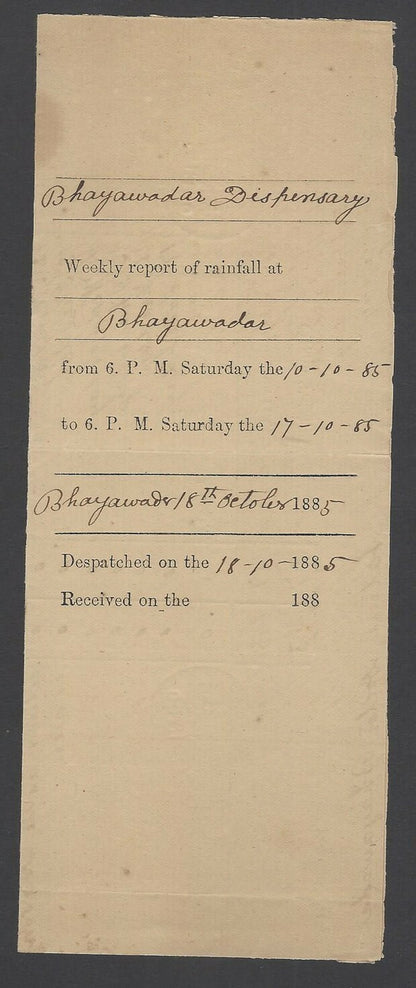 Bhayawadar Dispensary
Weekly report of rainfall at
Bhayawadar
from 6. P. M. Saturday the 10-10-85
to 6. P. M. Saturday the 17-10-85
Bhayawader 18th October 1885
Despatched on the 18-10-1885
Received on the 188